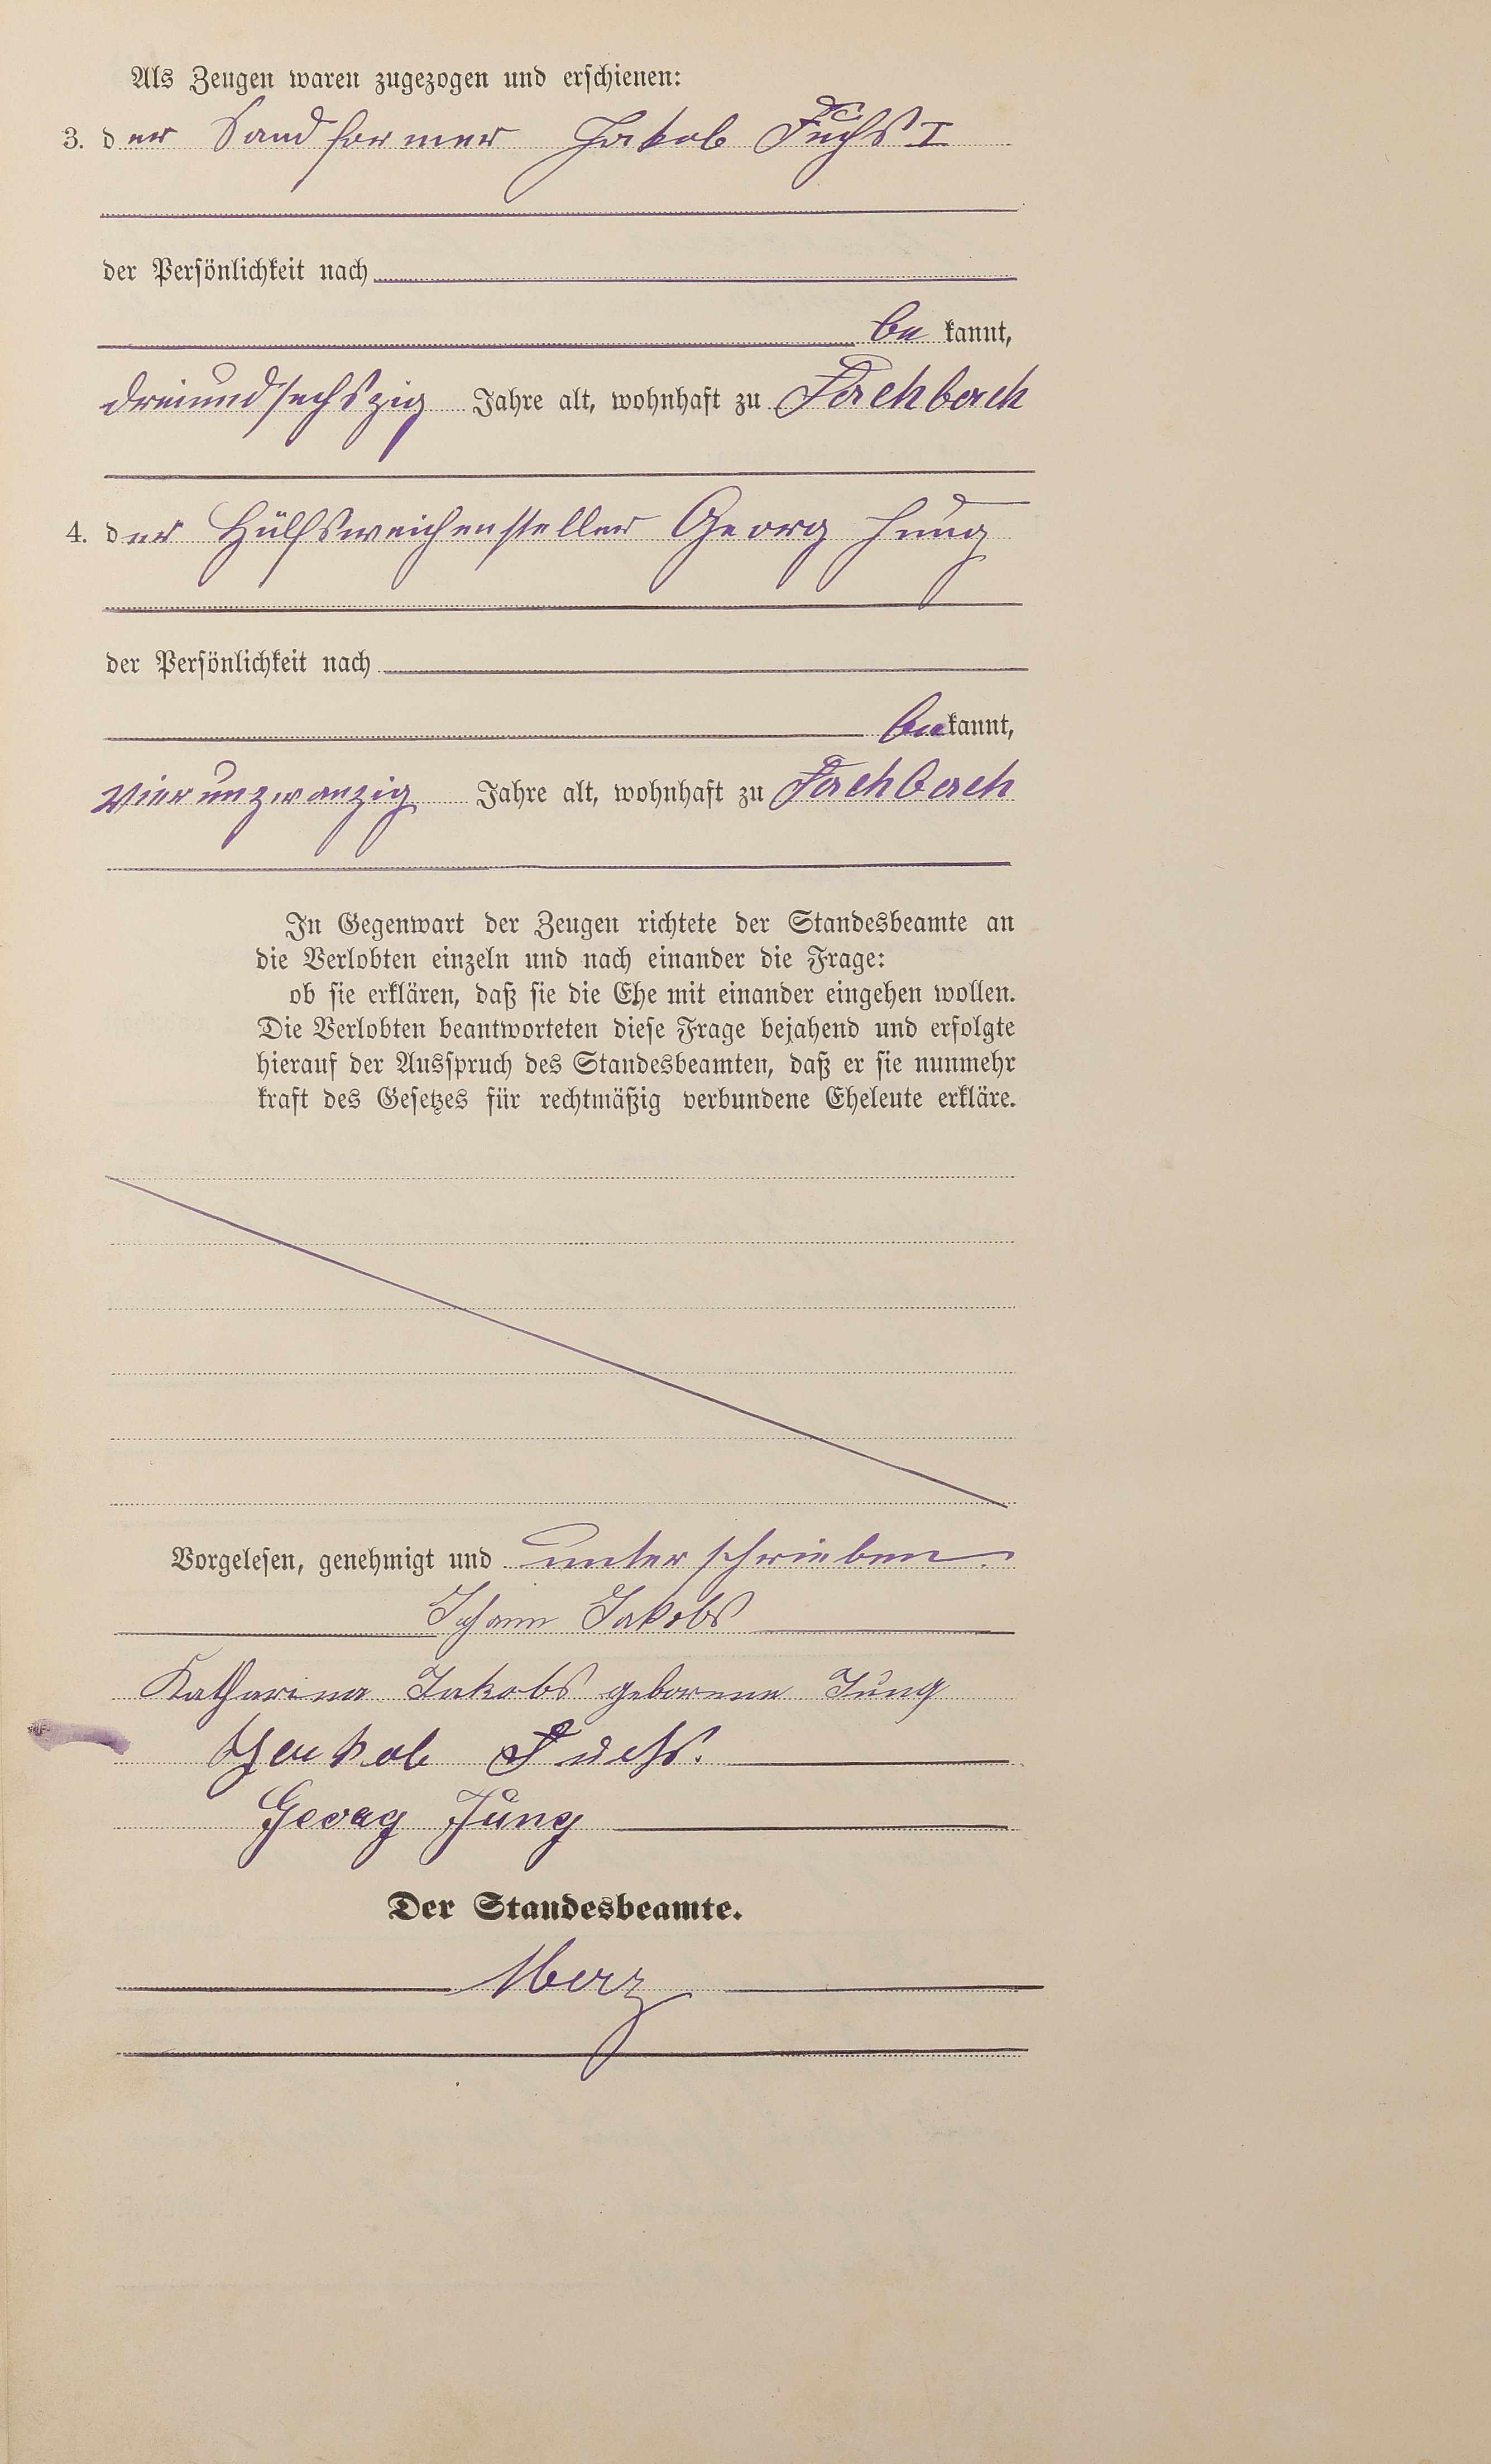 Als Zeugen waren zugezogen und erschienen:
3. der Sandformer Jakob Fuchs I
der Persönlichkeit nach
be kannt,
dreiundsechszig Jahre alt, wohnhaft zu Fachbach
4. der Hülfsweichensteller Georg Jung
der Persönlichkeit nach
bekannt,
vierunzwanzig Jahre alt, wohnhaft zu Fachbach
In Gegenwart der Zeugen richtete der Standesbeamte an
die Verlobten einzeln und nach einander die Frage:
ob sie erklären, daß sie die Ehe mit einander eingehen wollen.
Die Verlobten beantworteten diese Frage bejahend und erfolgte
hierauf der Ausspruch des Standesbeamten, daß er sie nunmehr
kraft des Gesetzes für rechtmäßig verbundene Eheleute erkläre.
Vorgelesen, genehmigt und unterschrieben.
Johann Jakobs
Katharina Jakobs geborene Jung
Jakob Fuchs.
Georg Jung
Der Standesbeamte.
Merz